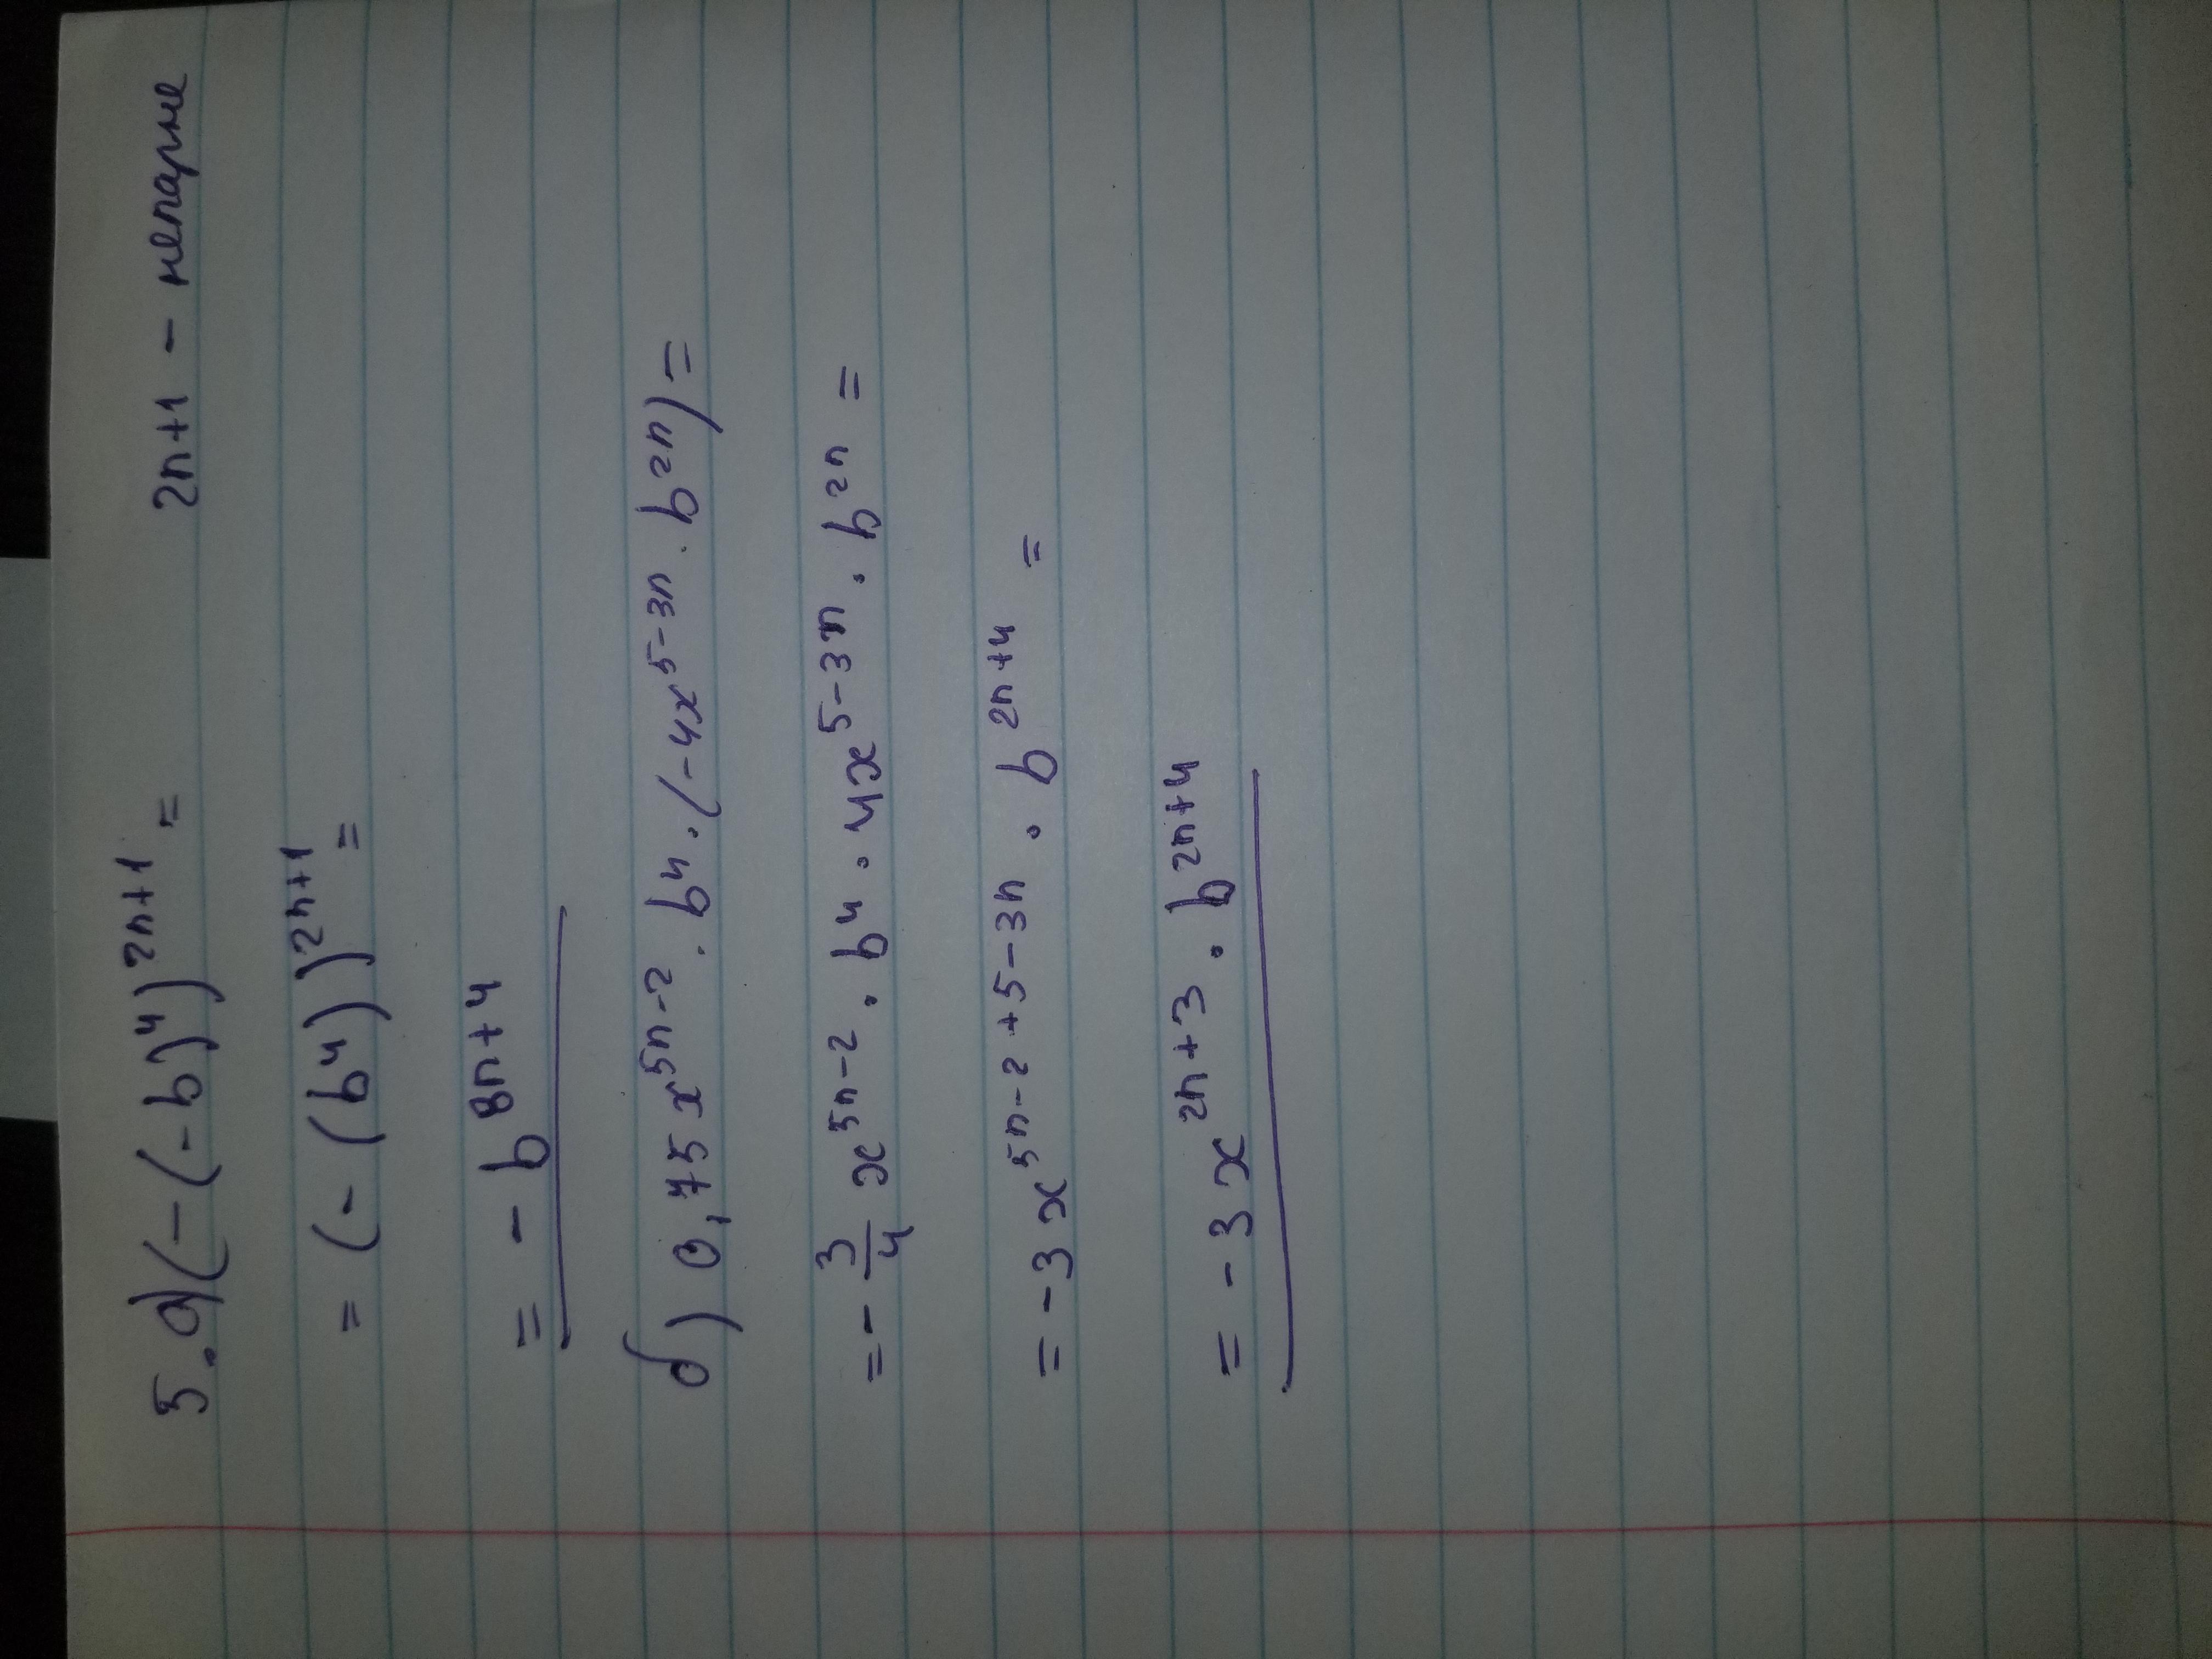 5. а) (-(-b)⁴)²ⁿ⁺¹ = 2n+1 - непарне
= (-(b⁴))²ⁿ⁺¹ =
= - b⁸ⁿ⁺⁴
б) 0,75x⁵ⁿ⁻² · b⁴ · (-4x⁵⁻³ⁿ · b²ⁿ) =
= - 3/4 x⁵ⁿ⁻² · b⁴ · 4x⁵⁻³ⁿ · b²ⁿ =
= -3x⁵ⁿ⁻²⁺⁵⁻³ⁿ · b²ⁿ⁺⁴ =
= -3x²ⁿ⁺³ · b²ⁿ⁺⁴